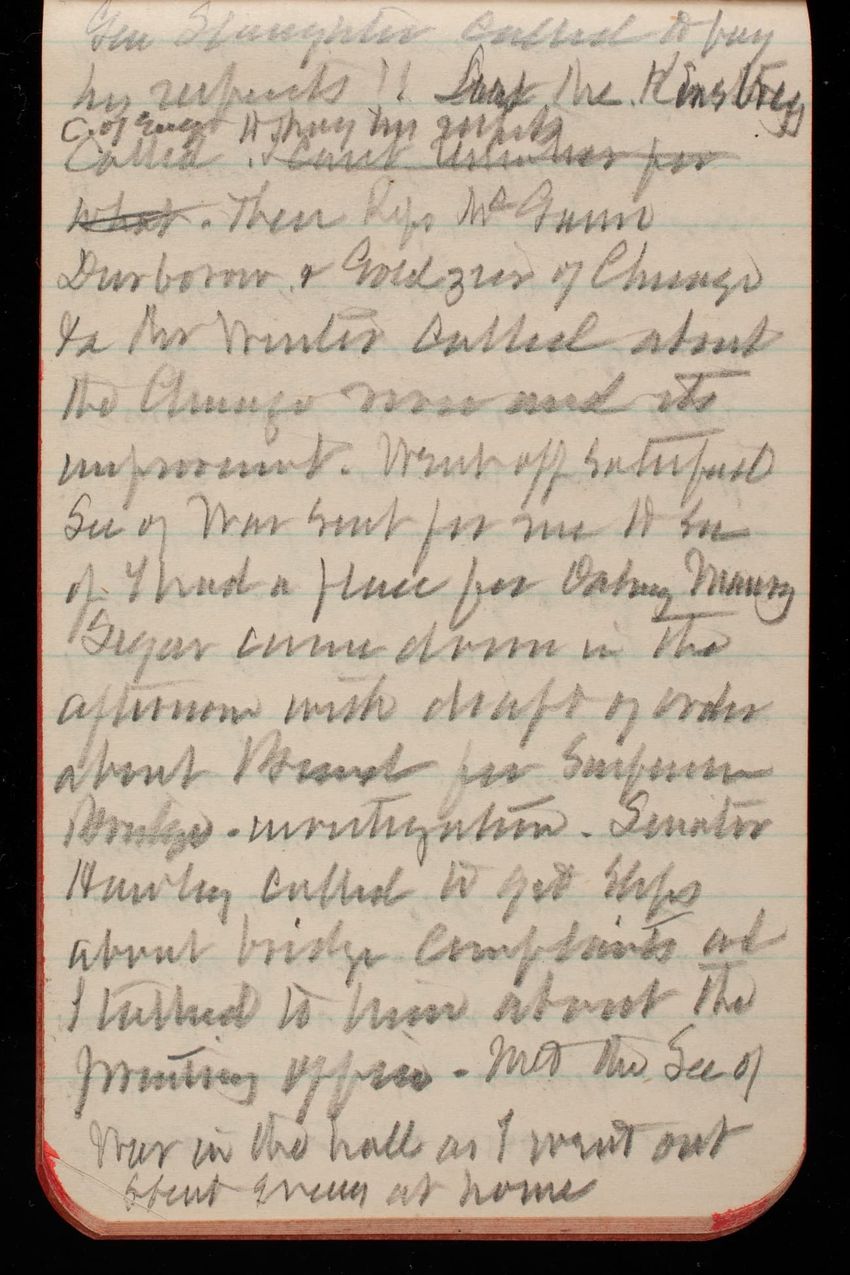 Gen Slaughter called to pay
his respects !! Capt Kingsbury
C. of Engs to pay his respects
Called. I cant remember for
what. Then Reps McGann
Durborow & Goldzier of Chicago
& a Mr Winter called about
the Chicago river and its
improvement. Went off satisfied
Sec of War sent for me to see
if I had a place for Dabney Maury
Segar came down in the
afternoon with draft of order
about Board for Suspension
Bridge - investigation. Senator
Hawley called to get steps
about bridge complaints and
I talked to him about the
printing office - Met the Sec of
War in the hall as I went out
Spent evening at home